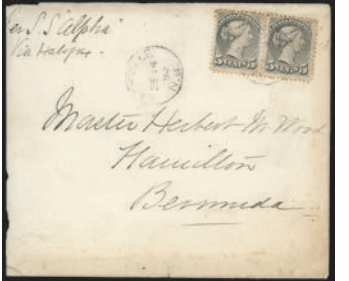 Per S.S. Alpha
Via Halifax.
5 CENTS 5
5 CENTS 5
Master Herbert M. Wood
Hamilton
Bermuda